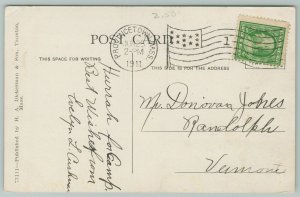 POST CARD
THIS SPACE FOR WRITING
THIS SIDE IS FOR THE ADDRESS
PROVINCETOWN, MASS.
2-PM
1911
1
Hurrah for Camp.
Best Wishes from
Evelyn L. Cushman
Mr. Donovan Jones
Randolph
Vermont
Published by H. A. Dickerman & Son, Taunton, Mass.